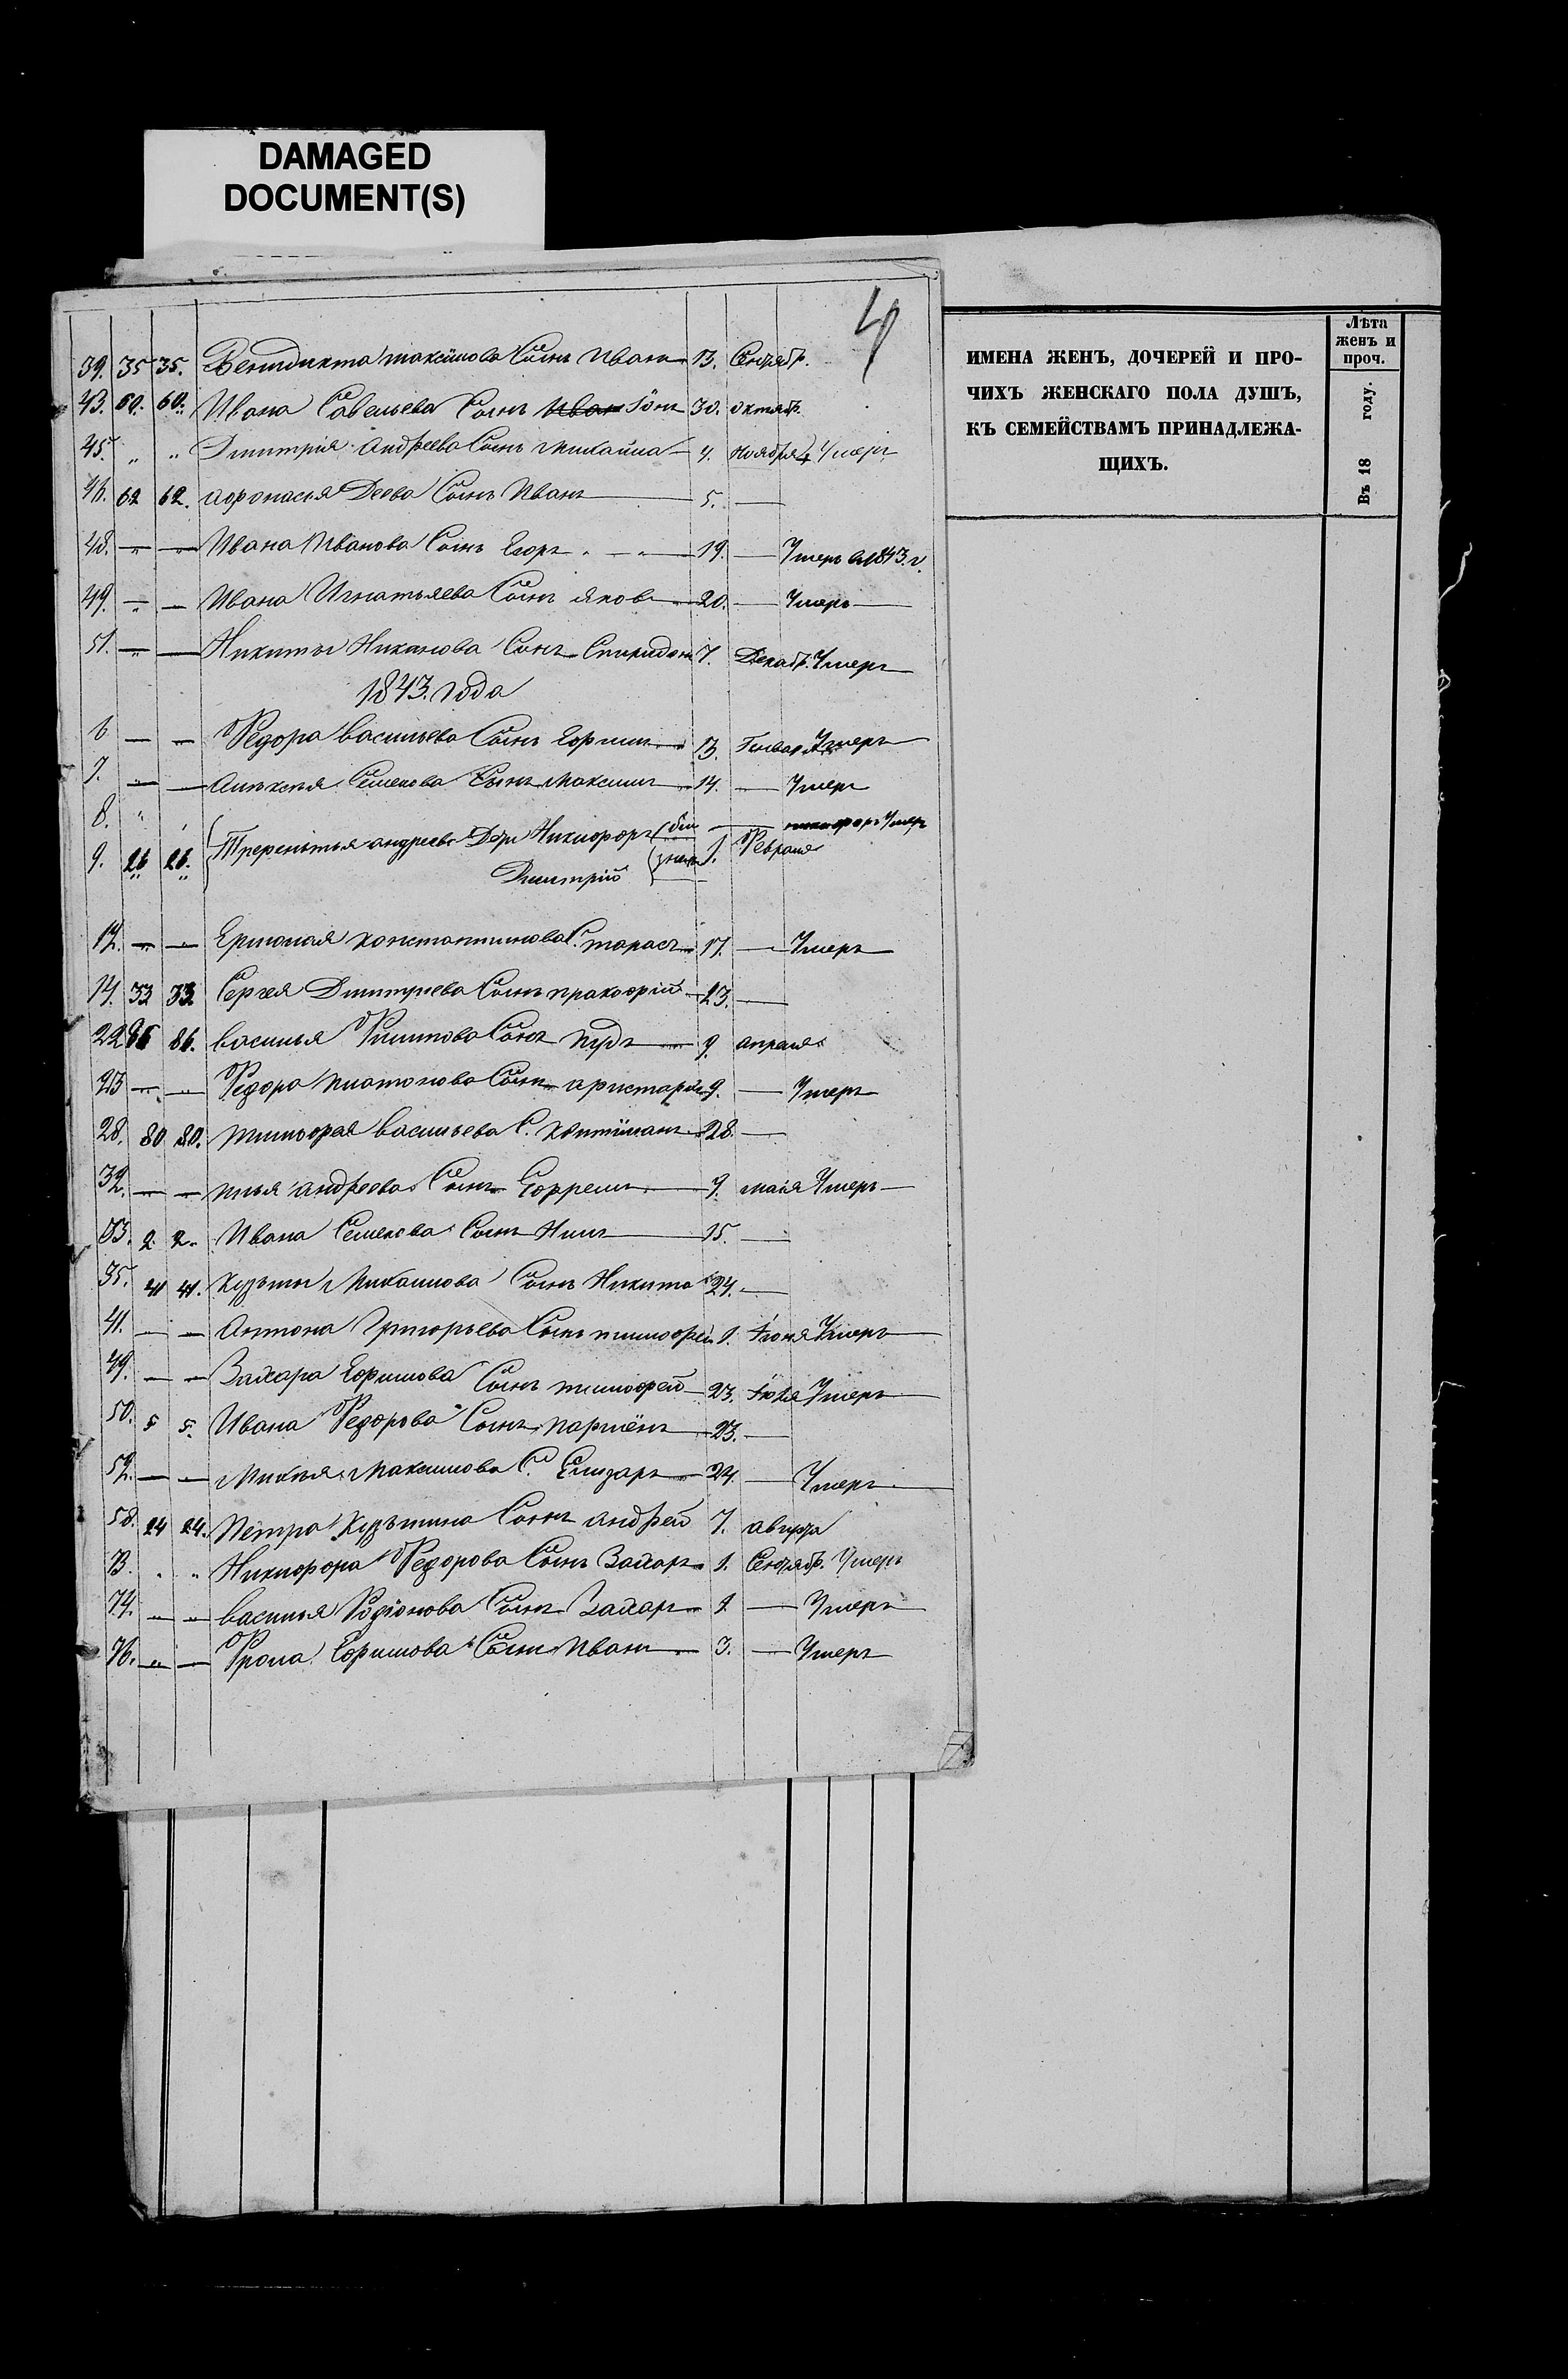 DAMAGED
DOCUMENT(S)
4
39. 35 35. Венидикта Максимова Сынъ Иванъ 13. Сентяб.
43. 60. 60. Ивана Савельева Сынъ Іонъ 30. октяб.
45. " " Дмитрия Андреева Сынъ Михаила 4. Ноября Умеръ
46. 62 62. Афонасья Деева Сынъ Иванъ 5. —
48. — — Ивана Иванова Сынъ Егоръ 19. — Умеръ в 1843. г.
49. — — Ивана Игнатьева Сынъ Яковъ 20. — Умеръ
51. — — Никиты Сынъ Спиридонъ 7. Декаб. Умеръ
1843. года
6 — — Федора Васильева Сынъ Ефимъ 13. Генваря Умеръ
7. — — Алексея Семенова Сынъ Максимъ 14. — Умеръ
8. " " Терентья андреева Дети Никифоръ — никифоръ Умеръ
9. 26 26. Дмитрій 1. Февраля
12. — — Ермолая Константинова С. тарасъ 17. — Умеръ
14. 33 33 Сергея Дмитриева Сынъ прокофій 23. —
22 86 86. Василья Филипова Сынъ Пудъ 9. апреля
23 — — Федора Платонова Сынъ аристархъ 9. — Умеръ
28. 80 80. тимофея Васильева С. 28. —
32. — — Илья андреева Сынъ Ефремъ 9. маия Умеръ
33. 2 2. Ивана Семенова Сынъ Нилъ 15. —
35. 41 41. Кузьмы Михаилова Сынъ Никита 24. —
41. — — Антона Григорьева Сынъ тимофей 1. Іюня Умеръ
49. — — Захара Ефимова Сынъ тимофей 23. Іюля Умеръ
50. 5 5. Ивана Федорова Сынъ парменъ 23. —
52. — — Максимова С. Елизаръ 24. — Умеръ
58. 24 24. Петра Кузьмина Сынъ андрей 7. августа
73. " " Никифора Федорова Сынъ Захаръ 1. Сентяб. Умеръ
74. — — Василья Родіонова Сынъ Захаръ 2 — Умеръ
76. — — Фрола Ефимова Сынъ Иванъ 3. — Умеръ
ИМЕНА ЖЕНЪ, ДОЧЕРЕЙ И ПРО-
ЧИХЪ ЖЕНСКАГО ПОЛА ДУШЪ,
КЪ СЕМЕЙСТВАМЪ ПРИНАДЛЕЖА-
ЩИХЪ.
Лѣта
женъ и
проч.
Въ 18 году.